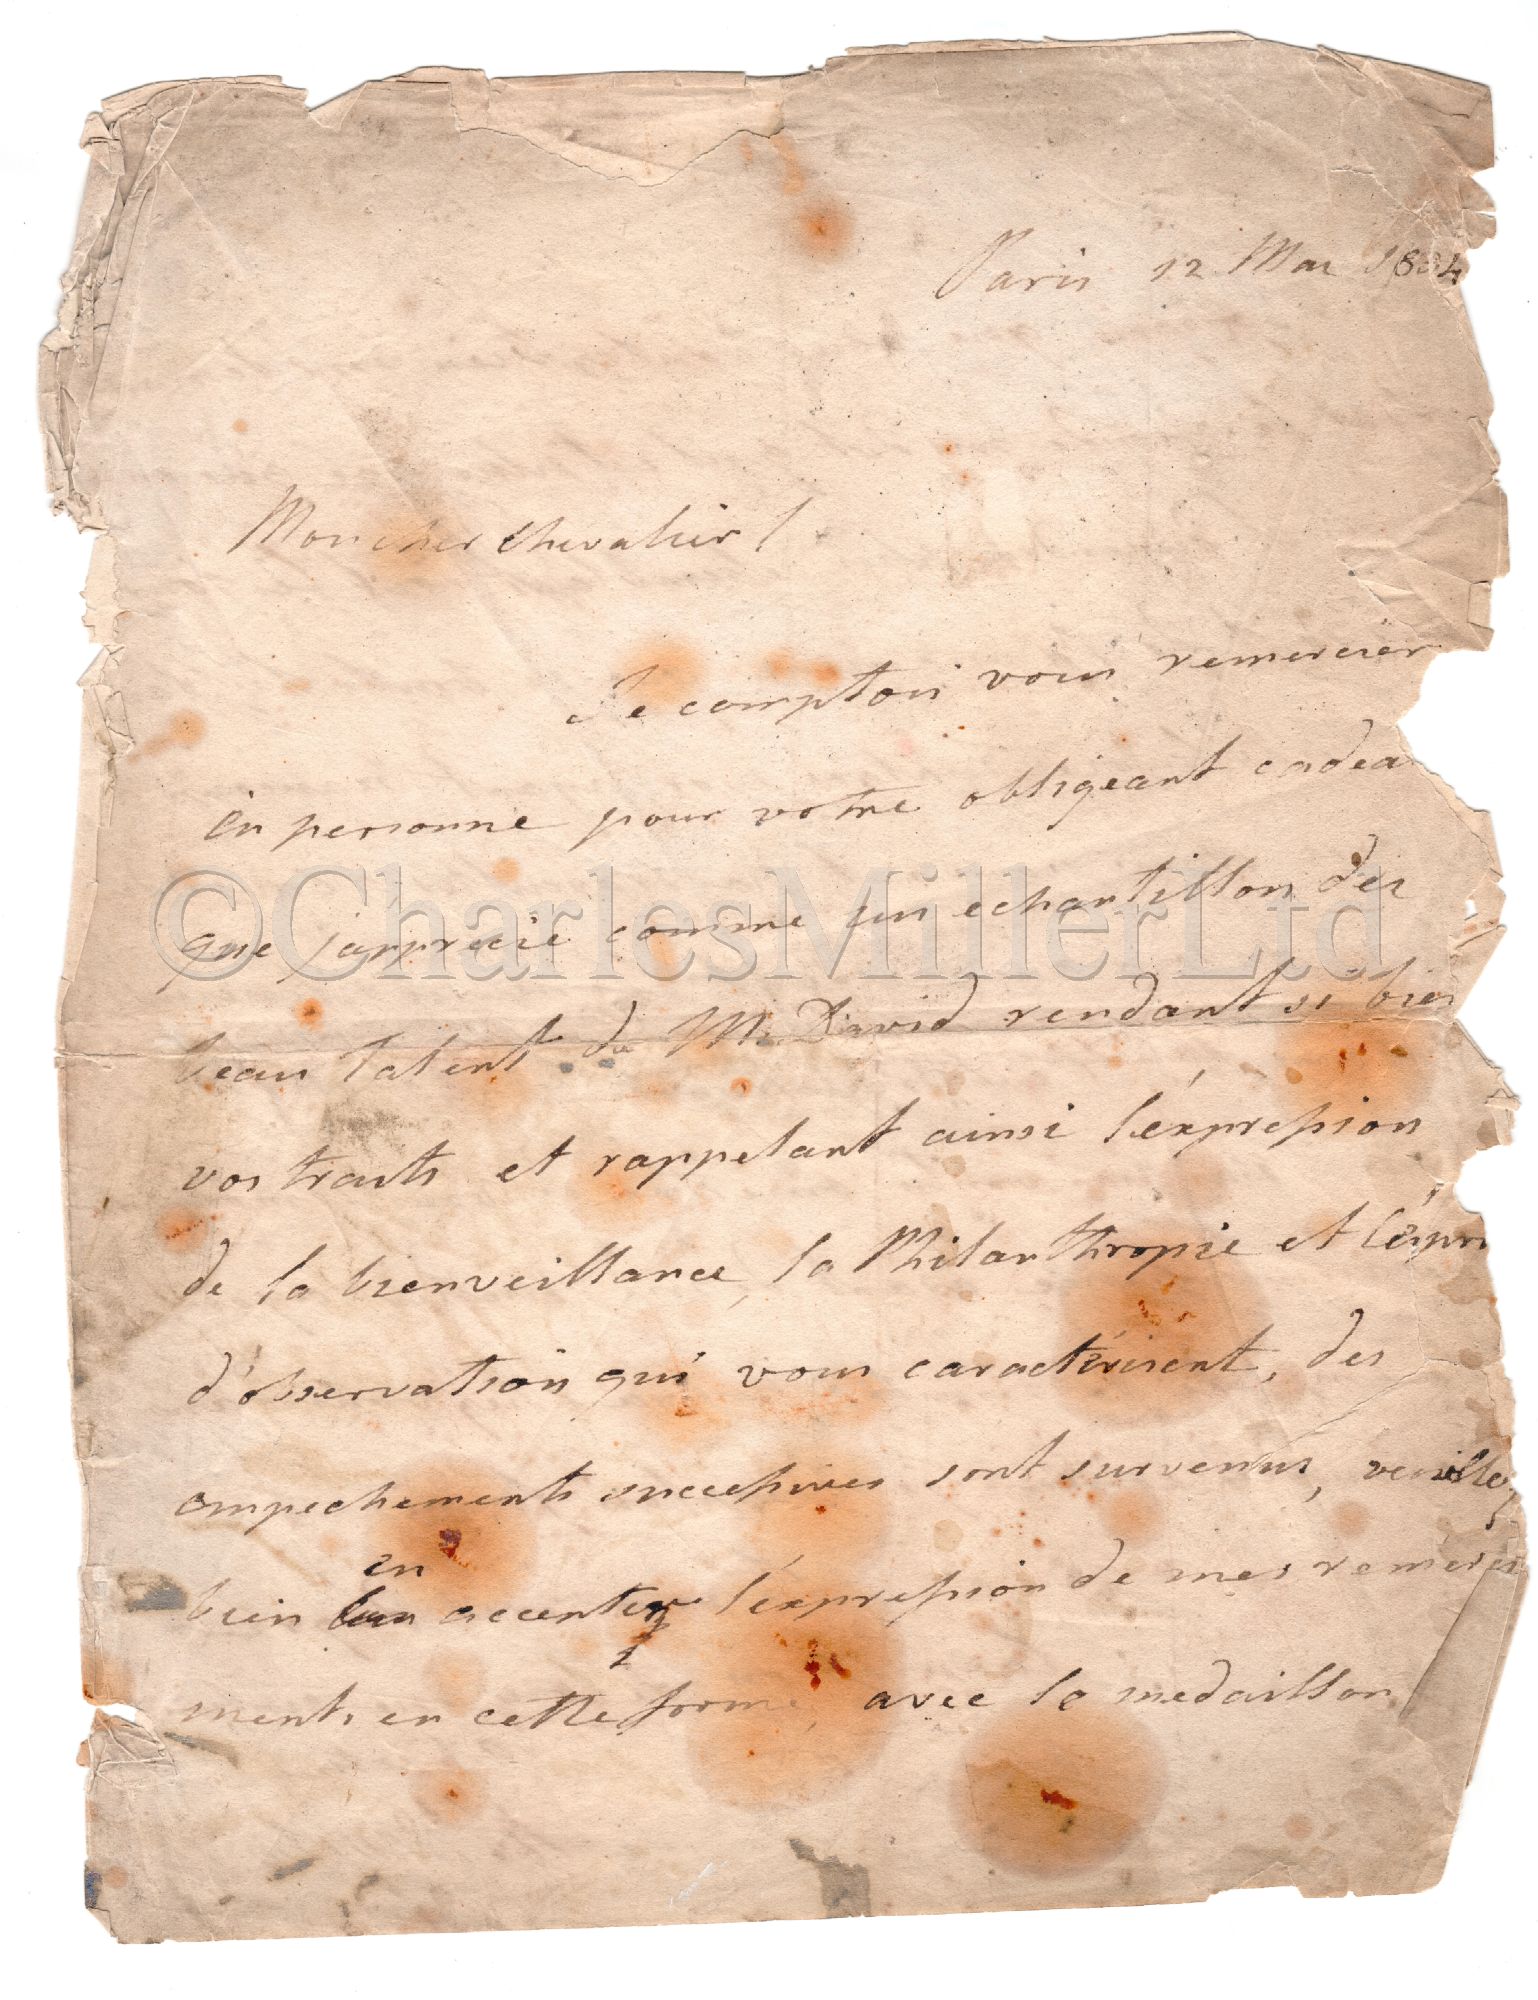 Paris 12 Mai 1834
Mon cher chevalier!
Je comptois vous remercier
en personne pour votre obligeant cadea
que j'apprecie comme un echantillon des
©CharlesMillerLtd
beau talent du M. David rendant si bien
vos traits et rappelant ainsi l'éxpression
de la bienveillance, la Philanthropie et l'éspri
d'observation qui vous caractérisent, des
empechements successives sont survenus, veuillez
bien en accepter l'éxpression de mes remercie
ments en cette forme, avec la medaillon